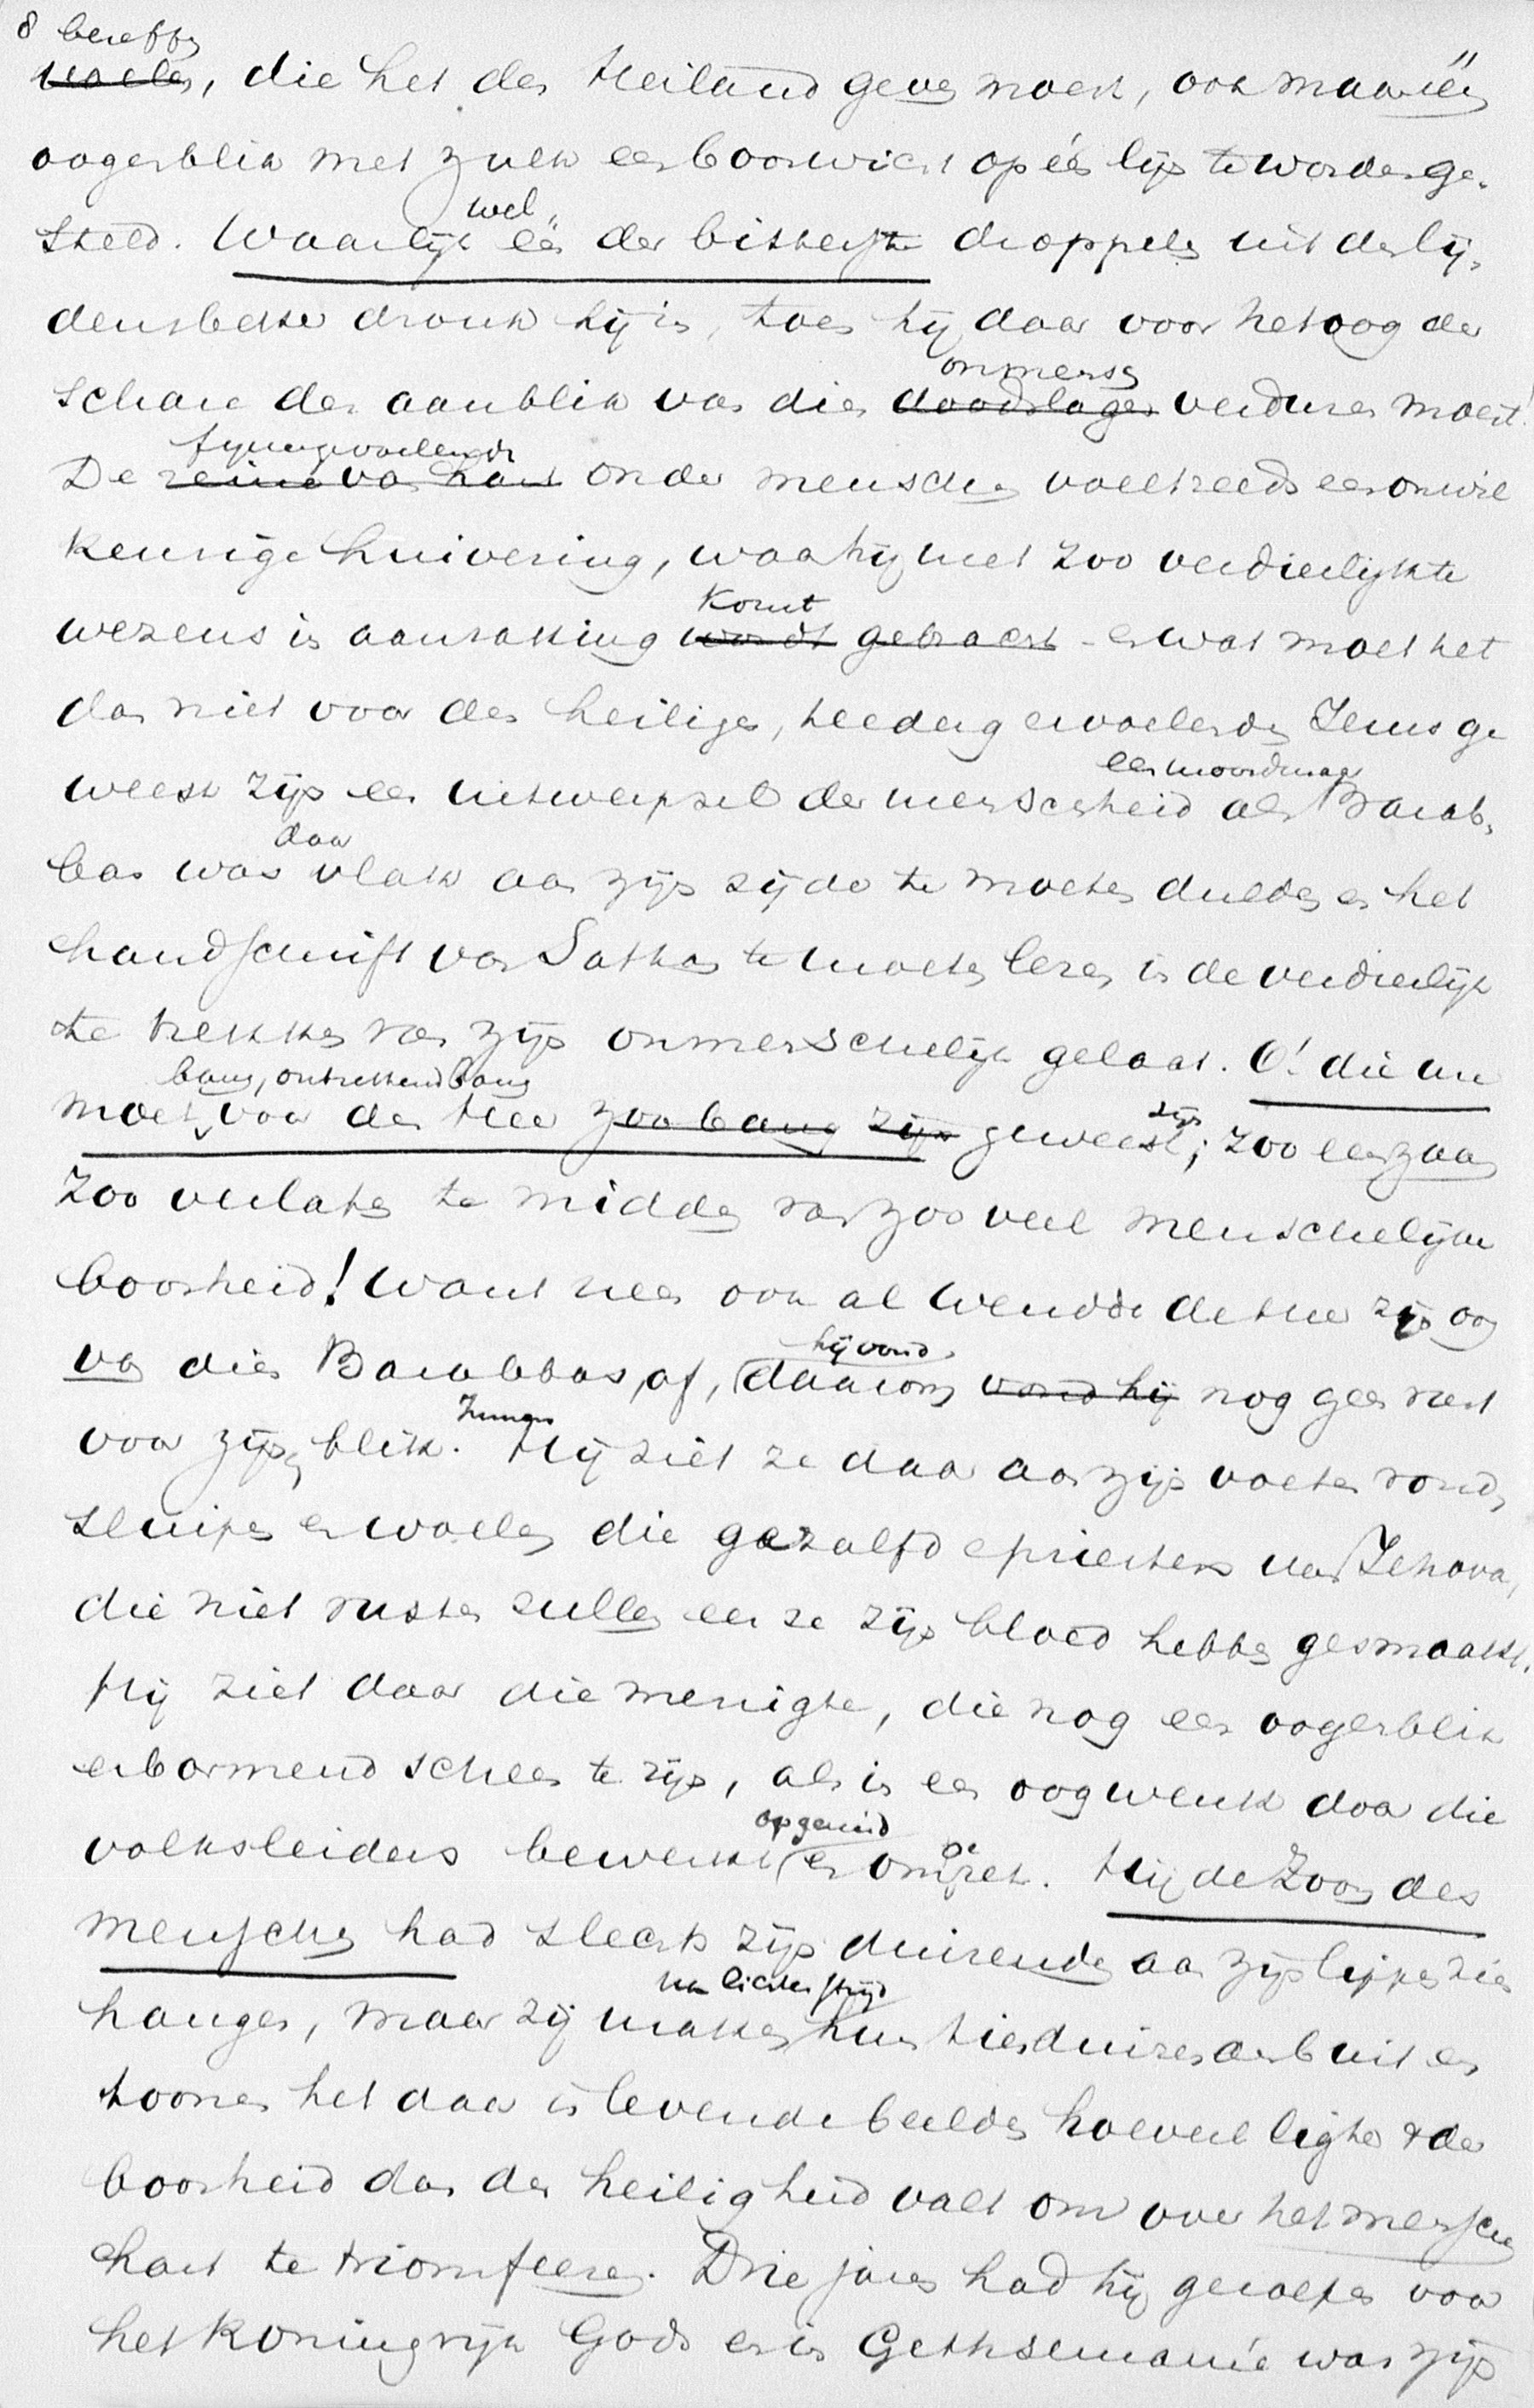 8 beseffen
voelen, die het den Heiland geven moest, ook maar één
oogenblik met zulk een booswicht op één lijn te worden ge-
steld. Waarlijk wel één der bitterste droppels uit den lij-
densbeker dronk hij in, toen hij daar voor het oog der
schare den aanblik van dien doodslager onmensch verduren moest!
De reine van hart fijngevoelende onder menschen voelt reeds een onwil
keurige huivering, waar hij met zoo verdierlijkte
wezens in aanraking wordt gebracht komt - en wat moet het
dan niet voor den heiligen, teedergevoelenden Jezus ge
weest zijn een uitwerpsel der menschheid als een moordenaar Barab-
bas was daar vlak aan zijn zijde te moeten dulden en het
handschrift van Sathan te moeten lezen in de verdierlijk
te trekken van zijn onmenschelijk gelaat. O! die ure
moet bang, ontzettend bang voor den Heer zoo bang zijn geweest zijn; zoo eenzaam
zoo verlaten te midden van zooveel menschelijke
boosheid! Want neen ook al wendde de Heer zijn oog
van dien Barabbas, af, hij vond daarom vond hij nog geen rust
voor zijn blik. Immers Hij ziet ze daar aan zijn voeten rond-
sluipen en woelen die gezalfde priesters van Jehova,
die niet rusten zullen eer ze zijn bloed hebben gesmaakt.
Hij ziet daar die menigte, die nog een oogenblik
erbarmend scheen te zijn, als in een oogwenk door die
volksleiders bewerkt opgeruid en omgezet. Hij de Zoon des
menschen had slechts zijn duizenden aan zijn lippen zien
hangen, maar zij maken na lichten strijd hun tienduizenden buit en
toonen het daar in levende beelden hoeveel lichter 't der
boosheid dan der heiligheid valt om over het menschen
hart te triomfeeren. Drie jaren had hij geroepen voor
het koningrijk Gods en in Gethsemané was zijn